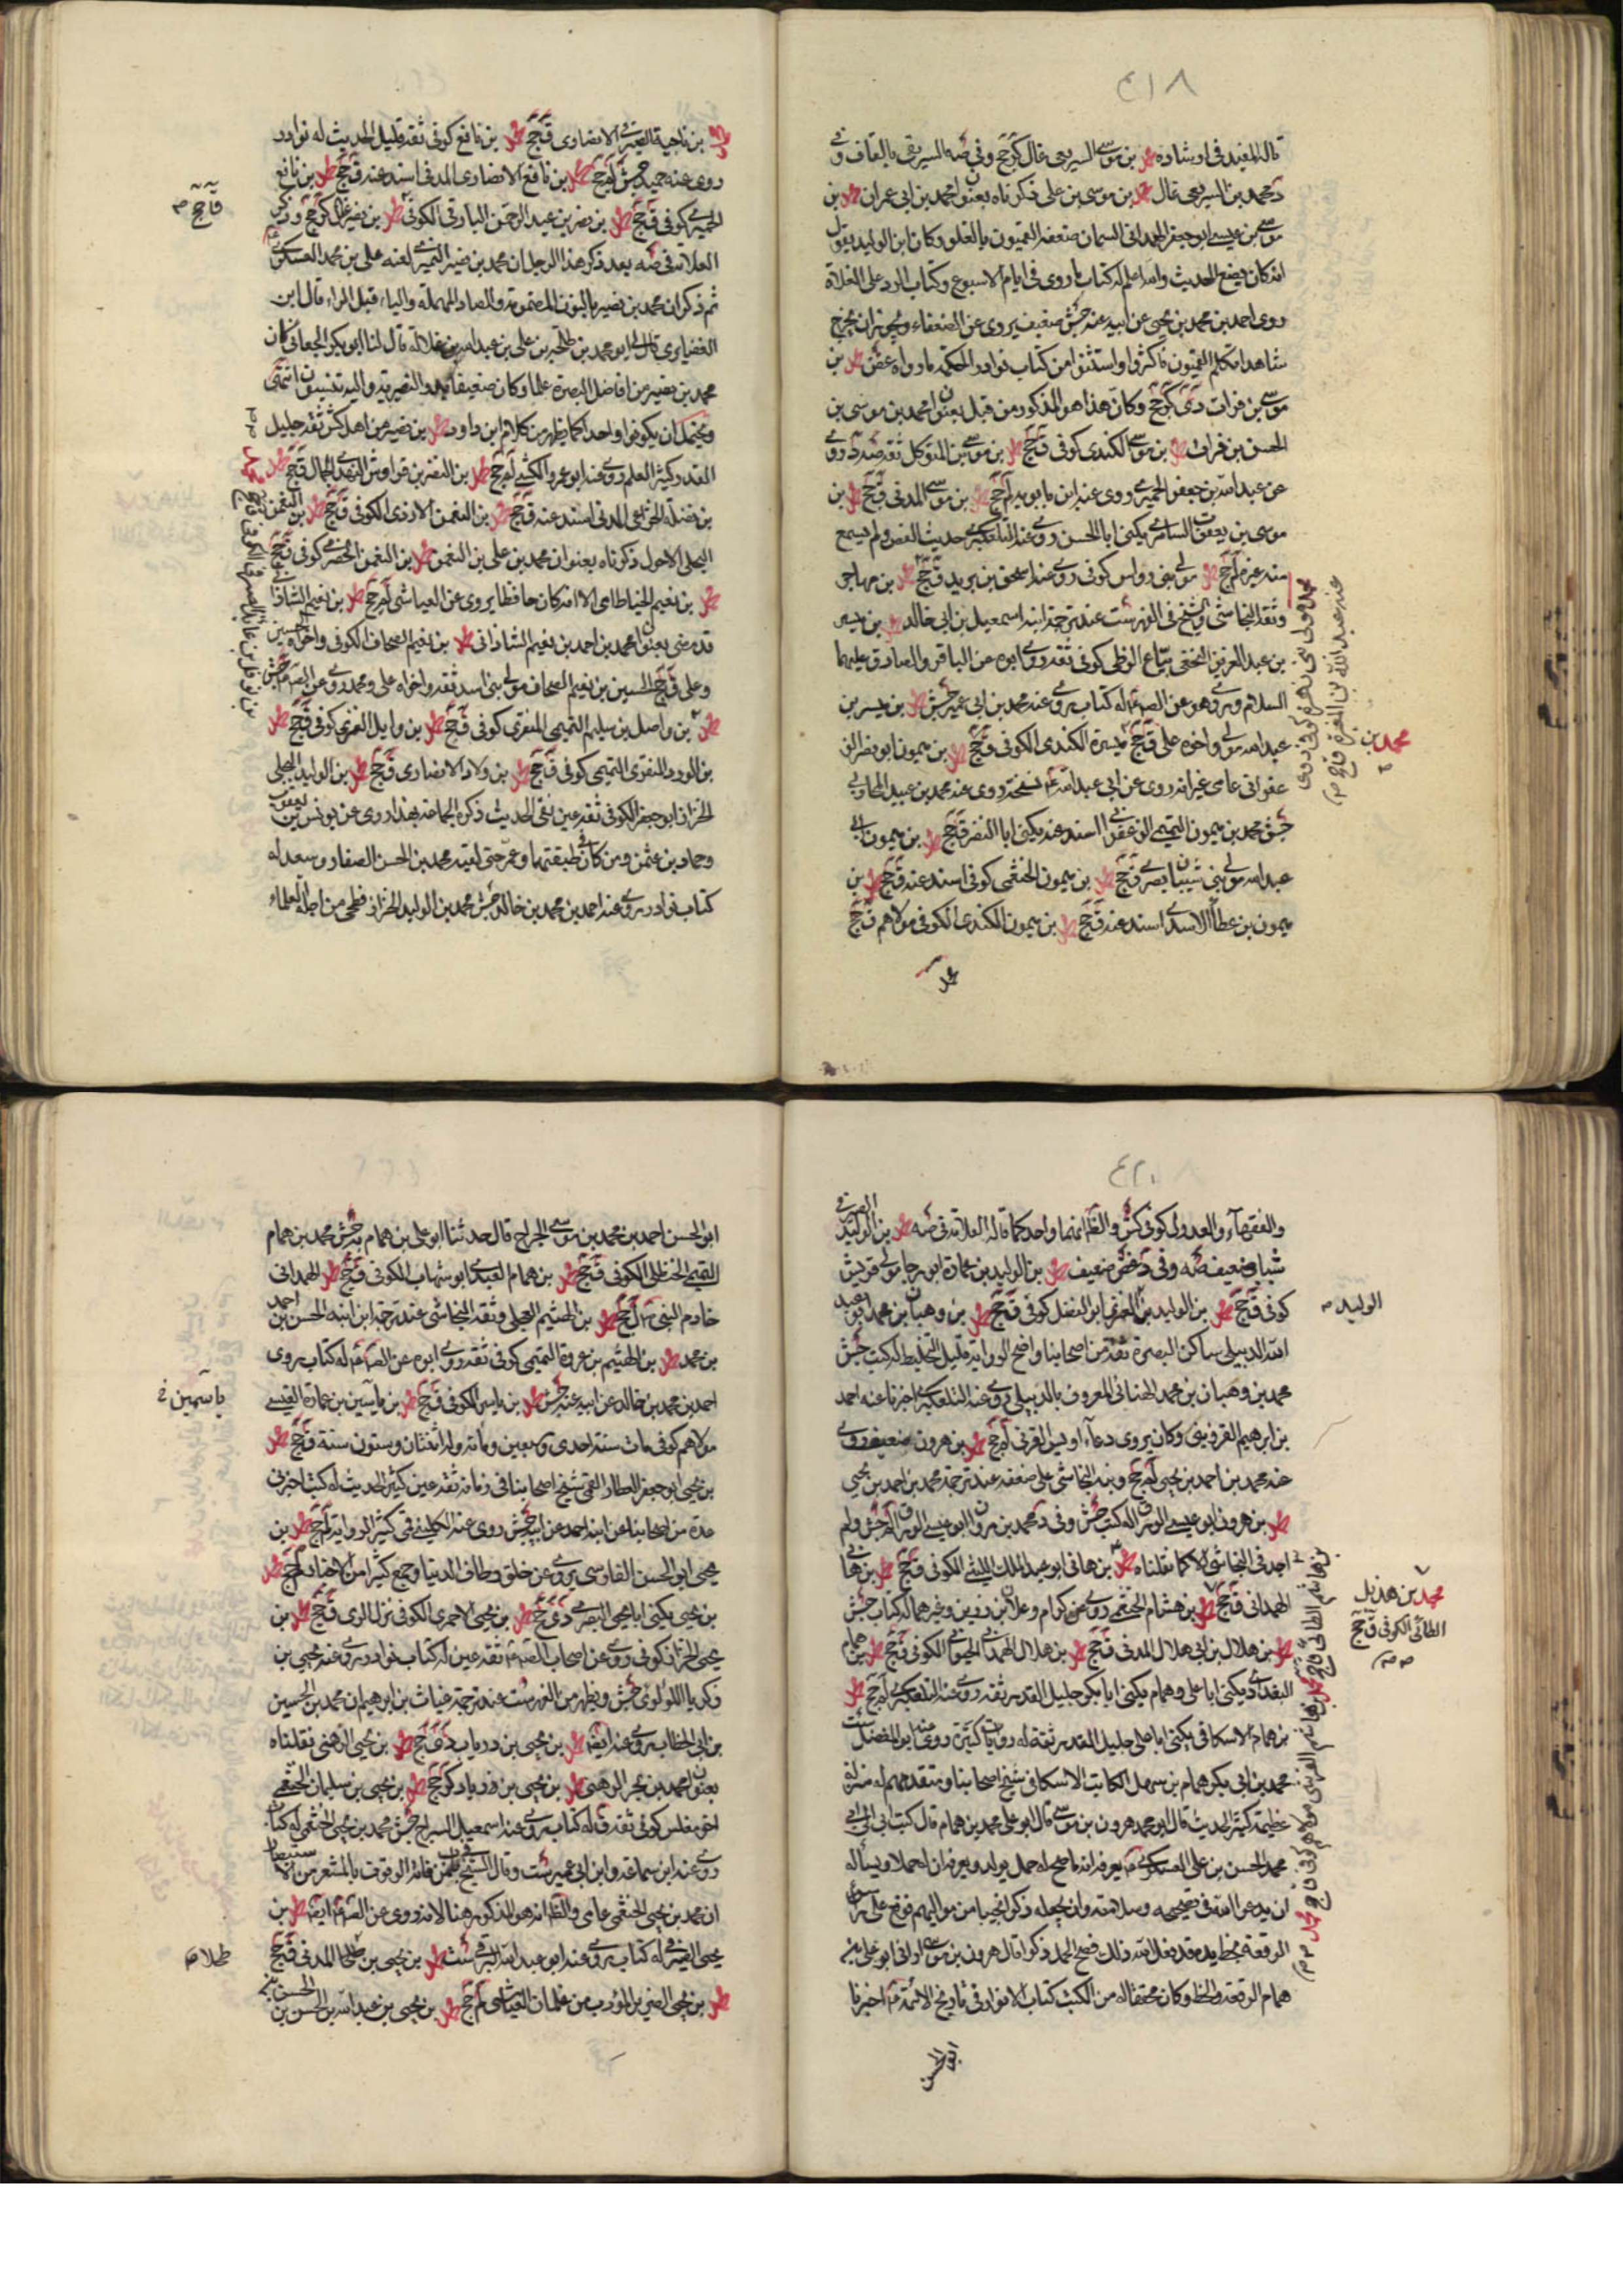 ٤١٨
قاله المفيد في ارشاده محمد بن موسى السريعي غال كر جخ وفي صه السريقي بالقاف وفي
د محمد بن السريعي غال محمد بن موسى بن علي ذكرناه بعنوان محمد بن ابي عمران محمد بن
موسى بن عيسى ابو جعفر الهمداني السمان ضعفه القميون بالغلو وكان ابن الوليد يقول
انه كان يضع الحديث والله اعلم له كتاب ما روى في ايام الاسبوع وكتاب الرد على الغلاة
روى احمد بن محمد بن يحيى عن ابيه عنه جش ضعيف يروى عن الضعفاء ويجوز ان يخرج
شاهدا تكلم القميون فاكثروا واستثنوا من كتاب نوادر الحكمة ما رواه غض محمد بن
موسى بن فرات دي كر جخ وكان هذا هو المذكور من قبل بعنوان محمد بن موسى بن
الحسن بن فرات محمد بن موسى الكندي كوفي ق جخ محمد بن موسى بن المتوكل ثقة صه د روى
عن عبد الله بن جعفر الحميري روى عنه ابن بابويه لم جخ محمد بن موسى المدني ق جخ محمد بن
موسى بن يعقوب السامري يكنى ابا الحسن روى عنه التلعكبري حديث القص ولم يسمع
منه غيره لم جخ محمد مولى بني رواس كوفي روى عنه اسحق بن يزيد ق جخ محمد بن مهاجر
وثقه النجاشي والشيخ في الفهرست عند ترجمة ابنه اسمعيل بن ابي خالد محمد بن ميسر
بن عبد العزيز النخعي بياع الزطي كوفي ثقة روى ابوه عن الباقر والصادق عليهما
السلام وروى هو عن الصادق ع له كتاب روى عنه محمد بن ابي عمير جش محمد بن ميسر بن
عبد الله مولى واخوه علي ق جخ ميسرة الكندي الكوفي ق جخ محمد بن ميمون ابو نصر الز
عفراني عامي غير انه روى عن ابي عبد الله ع نسخة روى عنه محمد بن عبيد المحاربي
جش محمد بن ميمون التميمي الزعفراني اسند عنه يكنى ابا النضر ق جخ محمد بن ميمون ابي
عبد الله مولى بني شيبان بصري ق جخ محمد بن ميمون الخثعمي كوفي اسند عنه ق جخ محمد بن
ميمون بن عطا الاسدي اسند عنه ق جخ محمد بن ميمون الكندي الكوفي مولاهم ق جخ
محمد
محمد بن
محمد بن ناجية الصيرفي الانصاري ق جخ محمد بن نافع كوفي ثقة قليل الحديث له نوادر
روى عنه حميد جش لم جخ محمد بن نافع الانصاري المدني اسند عنه ق جخ محمد بن نافع
الحميري كوفي ق جخ محمد بن نصر بن عبد الرحمن البارقي الكوفي محمد بن نصير غال كر جخ وذكر
العلامة في صه بعد ذكر هذا الرجل ان محمد بن نصير النميري لعنه علي بن محمد العسكري
ثم ذكر ان محمد بن نصير بالنون المضمومة والصاد المهملة والياء قبل الراء قال ابن
الغضايري قال لي ابو محمد بن طلحة بن علي بن عبد الله بن غلالة قال لنا ابو بكر الجعابي كان
محمد بن نصير من افاضل البصرة علما وكان ضعيفا بدو النصيرية واليه تنسبون انتهى
ويحتمل ان يكونوا واحدا كما يظهر من كلام ابن داود محمد بن نصير من اهل كش ثقة جليل
القدر كثير العلم روى عنه ابو عمرو الكشي لم جخ محمد بن النضر بن قرواش النهدي الجمال ق جخ محمد
بن نضلة الخزاعي المدني اسند عنه ق جخ محمد بن النعمن الازدي الكوفي ق جخ محمد بن النعمن
البجلي الاحول ذكرناه بعنوان محمد بن علي بن النعمن محمد بن النعمن الحضرمي كوفي ق جخ
محمد بن نعيم الخياط امي الا انه كان حافظا يروى عن العياشي لم جخ محمد بن نعيم الشاذاني
قد مضى بعنوان محمد بن احمد بن نعيم الشاذاني محمد بن نعيم الصحاف الكوفي واخواه حسين
وعلي ق جخ الحسين بن نعيم الصحاف مولى بني اسد ثقة واخواه علي ومحمد روى عن الصادق ع جش
محمد بن واصل بن سليم التميمي المنقري كوفي ق جخ محمد بن وايل العنزي كوفي ق جخ محمد
بن الورد المنقري التميمي كوفي ق جخ محمد بن ولاد الانصاري ق جخ محمد بن الوليد البجلي
الخزاز ابو جعفر الكوفي ثقة عين نقي الحديث ذكره الجماعة بهذا روى عن يونس بن يعقوب
وحماد بن عثمن ومن كان في طبقتهما وعمر حتى لقيه محمد بن الحسن الصفار وسعد له
كتاب نوادر روى عنه احمد بن محمد بن خالد جش محمد بن الوليد الخزاز فطحي من اجلة العلماء
ق جخ
٤٢٠
والفقهاء والعدول كوفي كش والظ انهما واحد كما قاله العلامة في صه محمد بن الوليد الصيرفي
شباب ضعيف صه وفي د غض ضعيف محمد بن الوليد بن عمارة ابو رجا مولى قريش
كوفي ق جخ محمد بن الوليد بن المغيرة ابو الفضل كوفي ق جخ محمد بن وهبان بن محمد ابو عبد
الله الدبيلي ساكن البصرة ثقة من اصحابنا واضح الرواية قليل التخليط له كتب جش
محمد بن وهبان بن محمد الهناني المعروف بالدبيلي روى عنه التلعكبري اخبرنا عنه احمد
بن ابرهيم القزويني وكان يروى دعاء اويس القرني لم جخ محمد بن هرون ضعيف روى
عنه محمد بن احمد بن يحيى لم جخ ونبه النجاشي على ضعفه عند ترجمة محمد بن احمد بن يحيى
محمد بن هرون ابو عيسى الوراق له كتب جش وفي د محمد بن هرون ابو عيسى الوراق لم جش ولم
اجد في النجاشي الا كما نقلناه محمد بن هاني ابو عبد الملك الليثي الكوفي ق جخ محمد بن هاني
الهمداني ق جخ محمد بن هشام الخثعمي روى عن كرام وعلا بن رزين وغيرهما له كتاب جش
محمد بن هلال بن ابي هلال المدني ق جخ محمد بن هلال الهمداني الكوفي ق جخ محمد بن همام
البغدادي يكنى ابا علي وهمام يكنى ابا بكر جليل القدر ثقة روى عنه التلعكبري لم جخ محمد
بن همام الاسكافي يكنى ابا علي جليل القدر ثقة له روايات كثيرة روى عنه ابو المفضل ست
محمد بن ابي بكر همام بن سهيل الكاتب الاسكافي شيخ اصحابنا ومتقدمهم له منزلة
عظيمة كثير الحديث قال ابو محمد هرون بن موسى قال ابو علي محمد بن همام قال كتب ابي الى ابي
محمد الحسن بن علي العسكري ع يعرفه انه ما صح له حمل يولد ويعرفه ان له حملا ويسأله
ان يدعو الله في تصحيحه وسلامته وان يجعله ذكرا نجيبا من مواليهم فوقع على راس
الرقعة بخط يده قد فعل الله ذلك فصح الحمل ذكرا قال هرون بن موسى اراني ابو علي بن
همام الرقعة والخط وكان محققا له من الكتب كتاب الانوار في تاريخ الائمة ع اخبرنا
الوليد
محمد بن هذيل
الطائي الكوفي ق جخ
ابو الحسن
ابو الحسن احمد بن محمد بن موسى الجراح قال حدثنا ابو علي بن همام به جش محمد بن همام
التميمي الحنظلي الكوفي ق جخ محمد بن همام العبدي ابو شهاب الكوفي ق جخ محمد الهمداني
خادم النبي ص ل جخ محمد بن الهيثم العجلي وثقه النجاشي عند ترجمة ابن ابنه الحسن بن احمد
بن محمد محمد بن الهيثم بن عروة التميمي كوفي ثقة روى ابوه عن الصادق ع له كتاب روى
احمد بن محمد بن خالد عن ابيه عنه جش محمد بن ياسر الكوفي ق جخ محمد بن ياسين بن عمارة القيسي
مولاهم كوفي مات سنة احدى وسبعين ومائة وله اثنتان وستون سنة ق جخ محمد
بن يحيى ابو جعفر العطار القمي شيخ اصحابنا في زمانه ثقة عين كثير الحديث له كتب اخبرني
عدة من اصحابنا عن ابنه احمد عن ابيه جش روى عنه الكليني قمي كثير الرواية لم جخ محمد بن
يحيى ابو الحسن الفارسي يروى عن خلق وطاف الدنيا وجمع كثيرا من الاخبار لم جخ محمد
بن يحيى يكنى ابا يحيى البصري دي جخ محمد بن يحيى الاحمري الكوفي نزل الري ق جخ محمد بن
يحيى الخزاز كوفي روى عن اصحاب الصادق ع ثقة عين له كتاب نوادر روى عنه يحيى بن
زكريا اللؤلؤي جش ويظهر من الفهرست عند ترجمة غياث بن ابراهيم ان محمد بن الحسين
بن ابي الخطاب يروى عنه ايضا محمد بن يحيى بن درياب دي جخ محمد بن يحيى الذهني نقلناه
بعنوان محمد بن بحر الرهني محمد بن يحيى بن زرياد كر جخ محمد بن يحيى بن سليمان الخثعمي
اخو مغلس كوفي ثقة ق له كتاب روى عنه اسمعيل السراج جش محمد بن يحيى الخثعمي له كتاب
روى عنه ابن سماعة وابن ابي عمير ست وقال الشيخ في باب من فاته الوقوف بالمشعر من الاستبصار
ان محمد بن يحيى الخثعمي عامي والظ انه هو المذكور هنا لانه روى عن الصادق ع ايضا محمد بن
يحيى الصيرفي له كتاب روى عنه ابو عبد الله البرقي ست محمد بن يحيى بن طلحة المدني ق جخ
محمد بن يحيى الضرير المؤدب من غلمان العياشي لم جخ محمد بن يحيى بن عبد الله بن الحسن بن الحسن بن
ياسمين خ